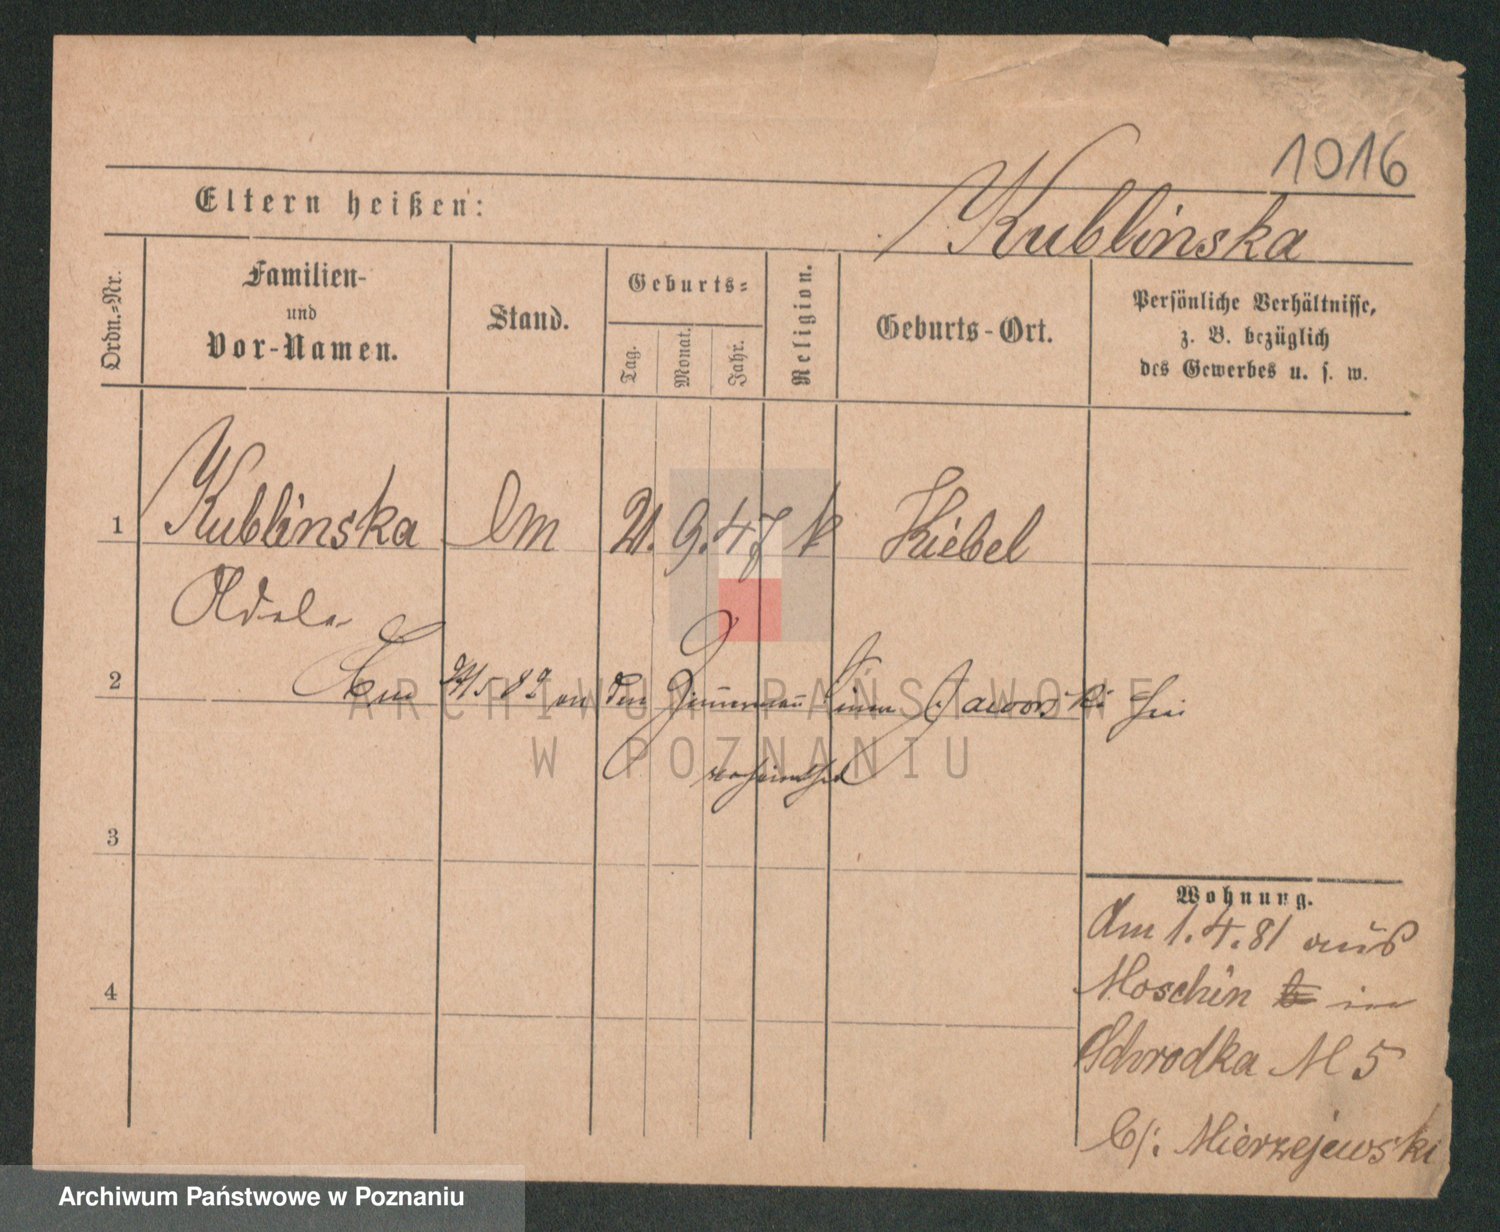 1016
Eltern heißen:
Kublinska
Ordn.-Nr.
Familien-
und
Vor-Namen.
Stand.
Geburts-
Tag.
Monat.
Jahr.
Religion.
Geburts-Ort.
Persönliche Verhältnisse,
z. B. bezüglich
des Gewerbes u. s. w.
1 Kublinska 21. 9. 47 k Kiebel
Adele
2
Am 24/5 82 an den Zimmermann Jaworski hier
verheirathet
ARCHIWUM PAŃSTWOWE
W POZNANIU
3
4
Wohnung.
Am 1.4.81 aus
Moschin in
Schrodka N 5
b/: Mierzejewski
Archiwum Państwowe w Poznaniu